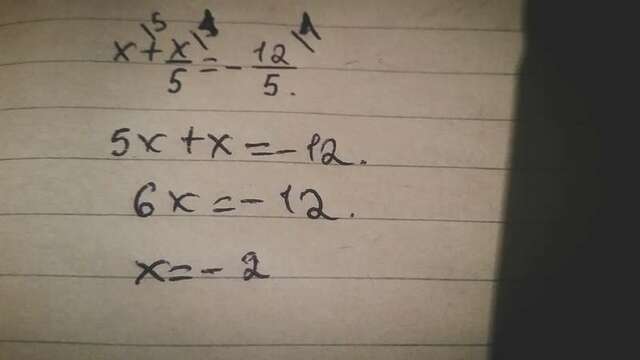 x\⁵ + x/5\¹ = - 12/5\¹.
5x + x = - 12.
6x = - 12.
x = - 2